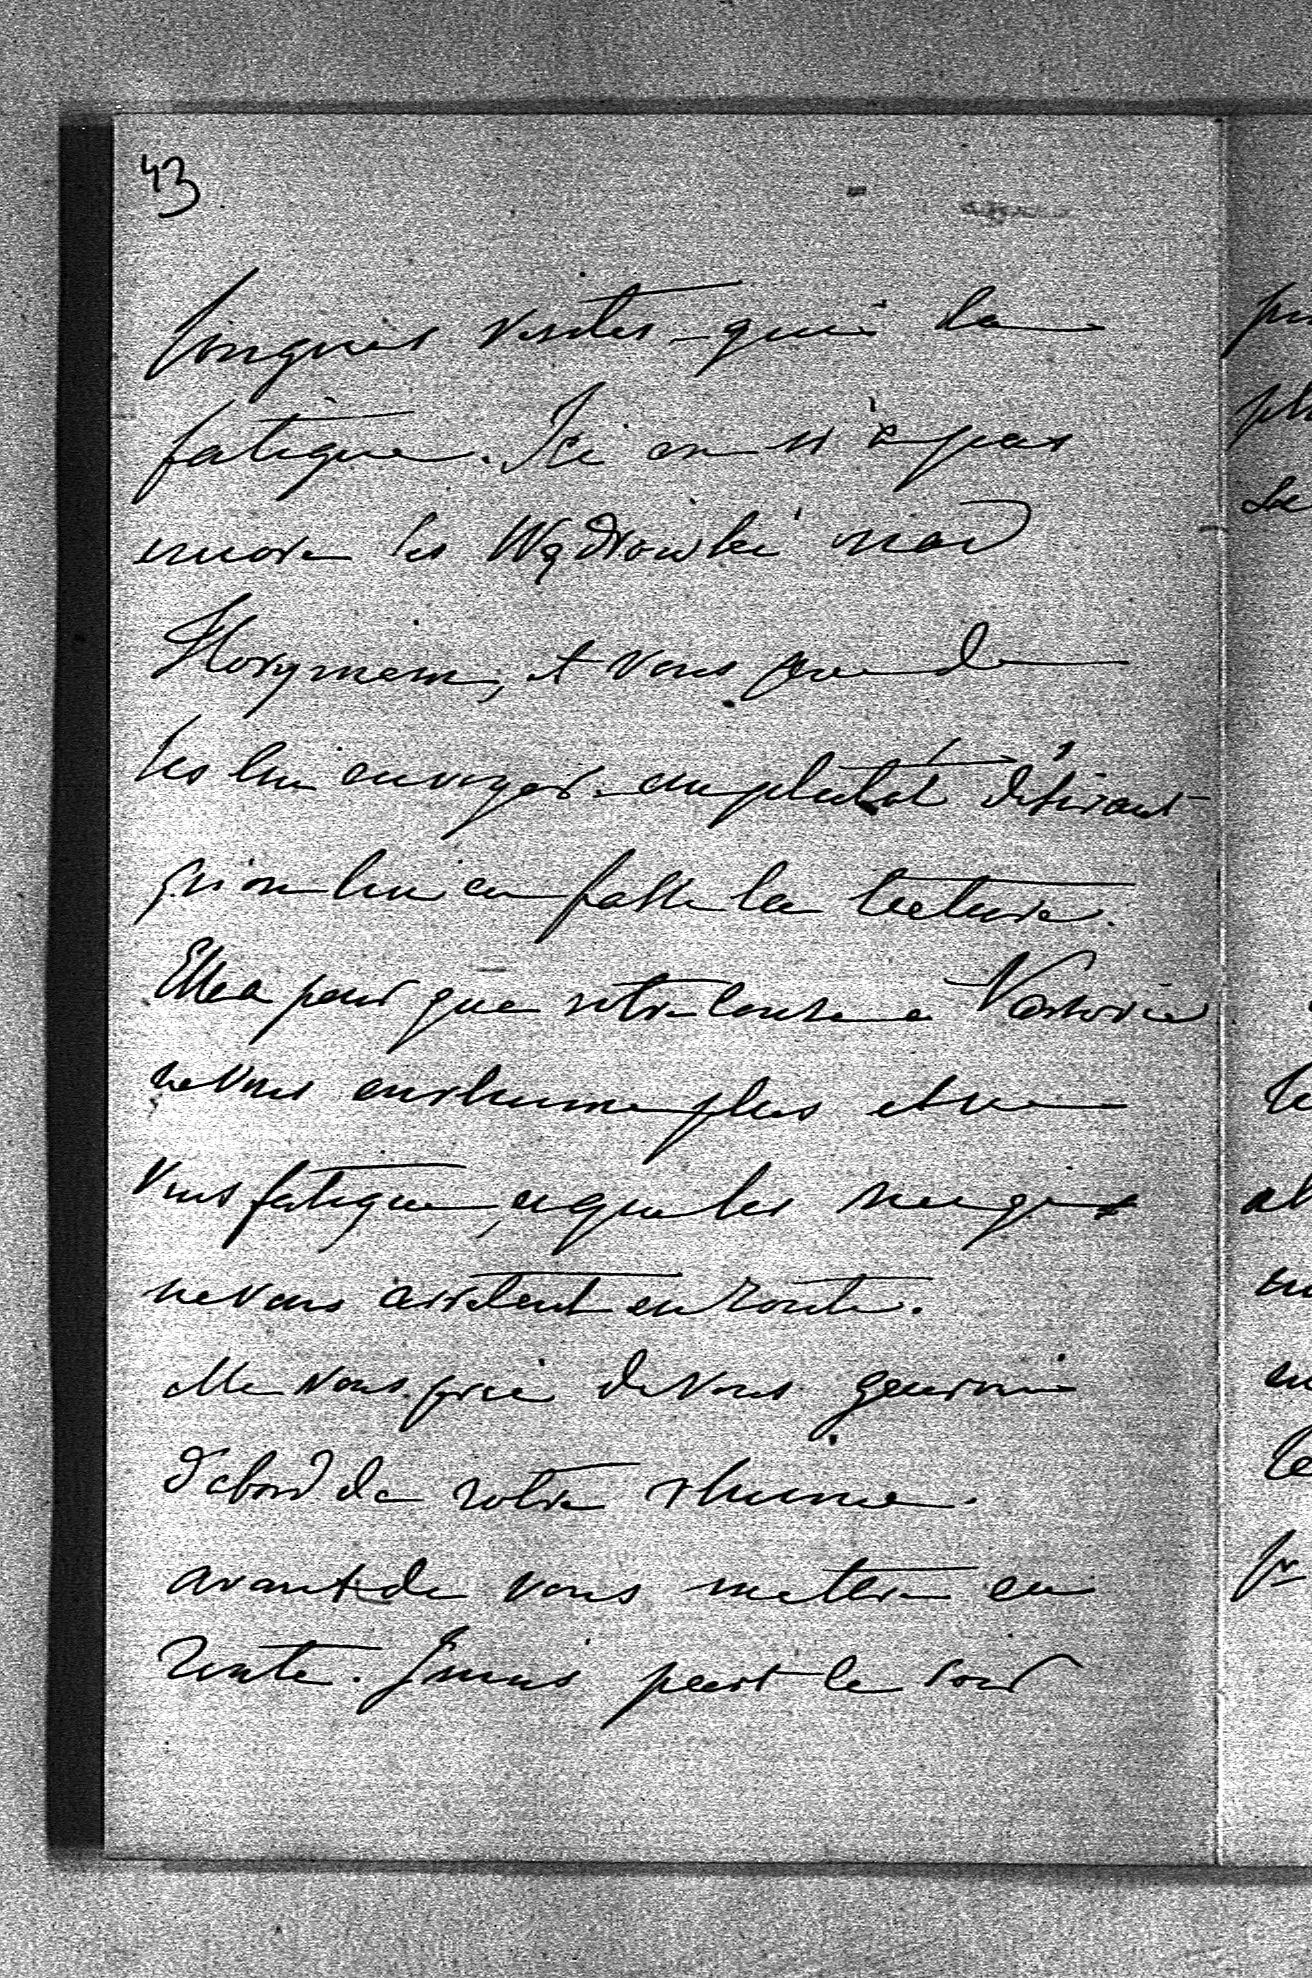 43
longues visites qui la
fatigue. Ici on n'a pas
encore les Wędrowki nad
Horyniem, et vous prie de
les lui envoyer au plutôt désirant
qu'on lui en fasse la lecture.
Elle a peur que votre course a Varsovie
ne vous enrhume plus et ne
vous fatigue, et que les neiges
ne vous arrêtent en route.
elle vous prie de vous guerrir
d'abord de votre rhume.
avant de vous mettre en
route. J'étais le soir